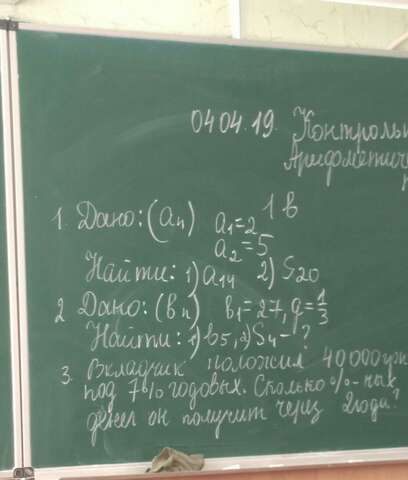 04.04.19. Контрольн
Арифметиче
1 в
1. Дано: (aₙ) a₁=2
a₂=5
Найти: 1) a₁₄ 2) S₂₀
2 Дано: (bₙ) b₁=27, q=1/3
Найти: 1) b₅, 2) S₄ - ?
3. Вкладчик положил 40000грн
под 7% годовых. Сколько %-ных
денег он получит через 2года?